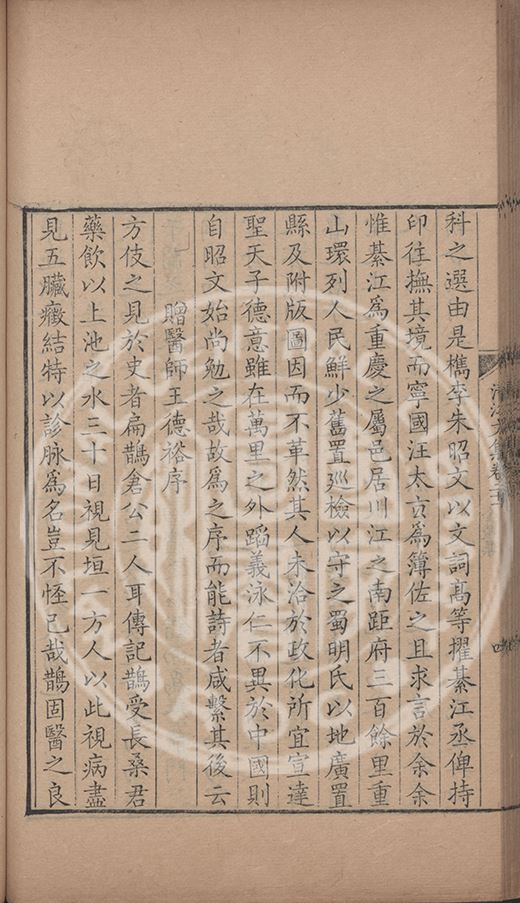 科之選由是檇李朱昭文以文詞高等擢綦江丞俾持
印往撫其境而寧國汪太古爲簿佐之且求言於余余
惟綦江爲重慶之屬邑居川江之南距府三百餘里重
山環列人民鮮少舊置廵檢以守之蜀明氏以地廣置
縣及附版圖因而不革然其人未洽於政化所宜宣達
聖天子德意雖在萬里之外蹈義泳仁不異於中國則
自昭文始尚勉之哉故爲之序而能詩者咸繫其後云
贈醫師王德裕序
方伎之見於史者扁鵲倉公二人耳傳記鵲受長桑君
藥飲以上池之水三十日視見垣一方人以此視病盡
見五臟癥結特以診脉爲名豈不怪已哉鵲固醫之良